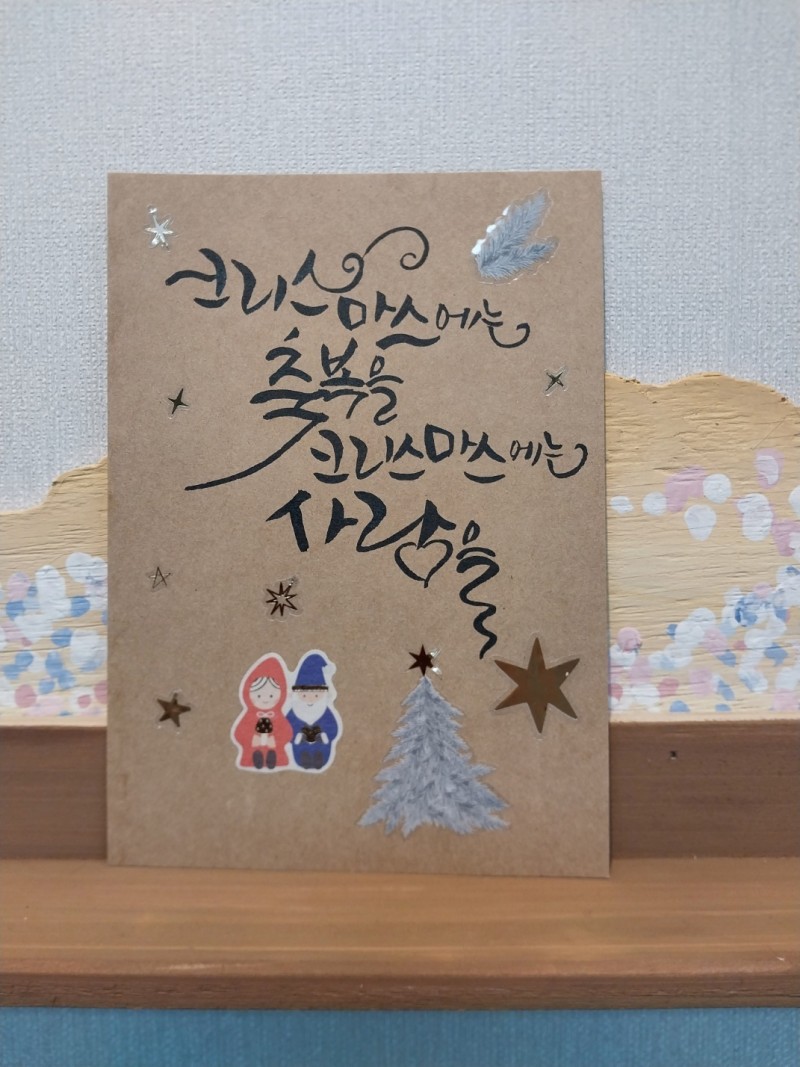 크리스마스에는
축복을
크리스마스에는
사랑을